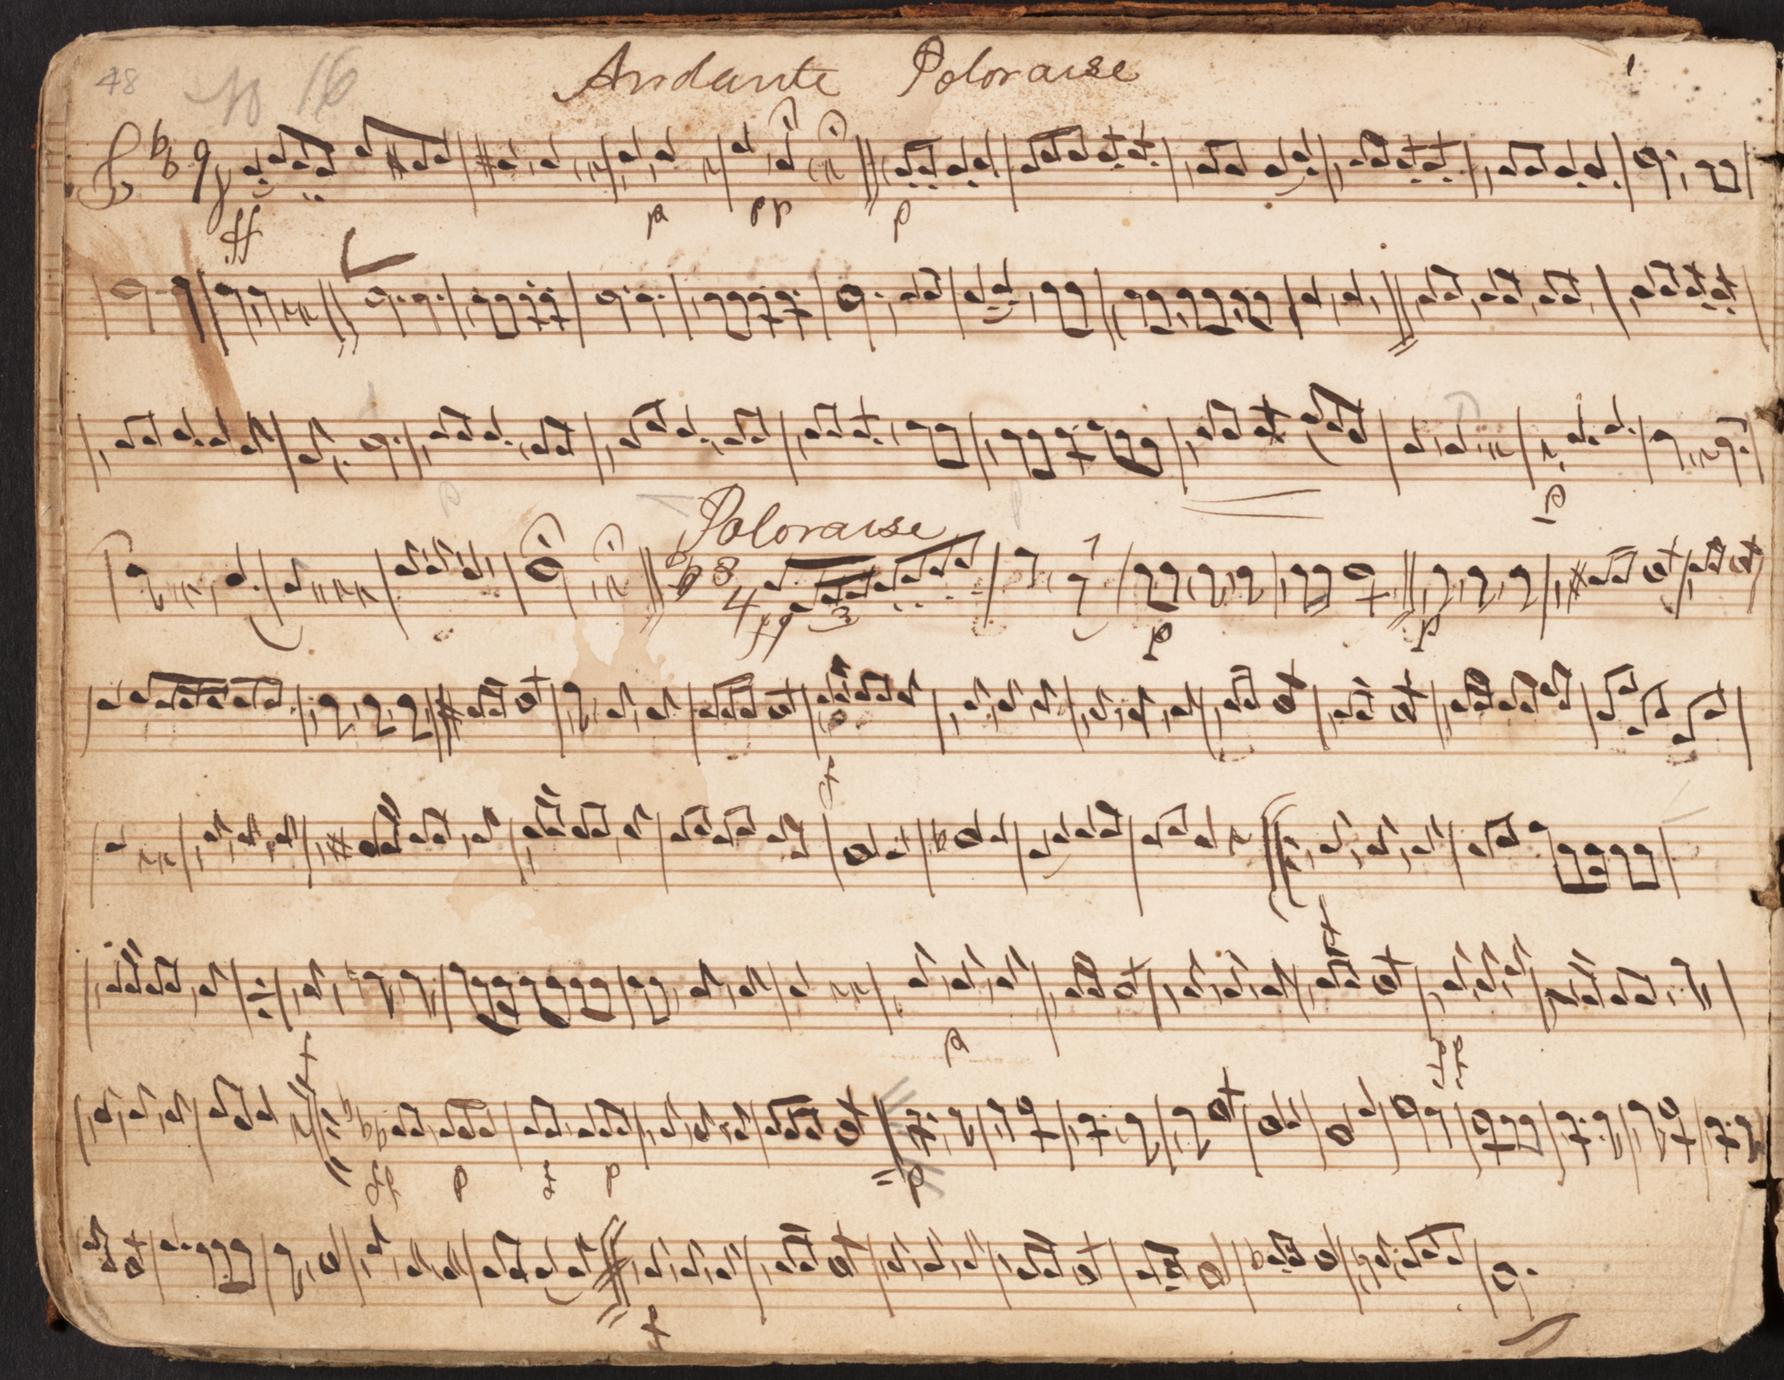 48 No 16 Andante Polonaise 1
ff p pp p
p
Polonaise
8 4
ff 3 p p
f
f
p
f ff
ff p f p p
f